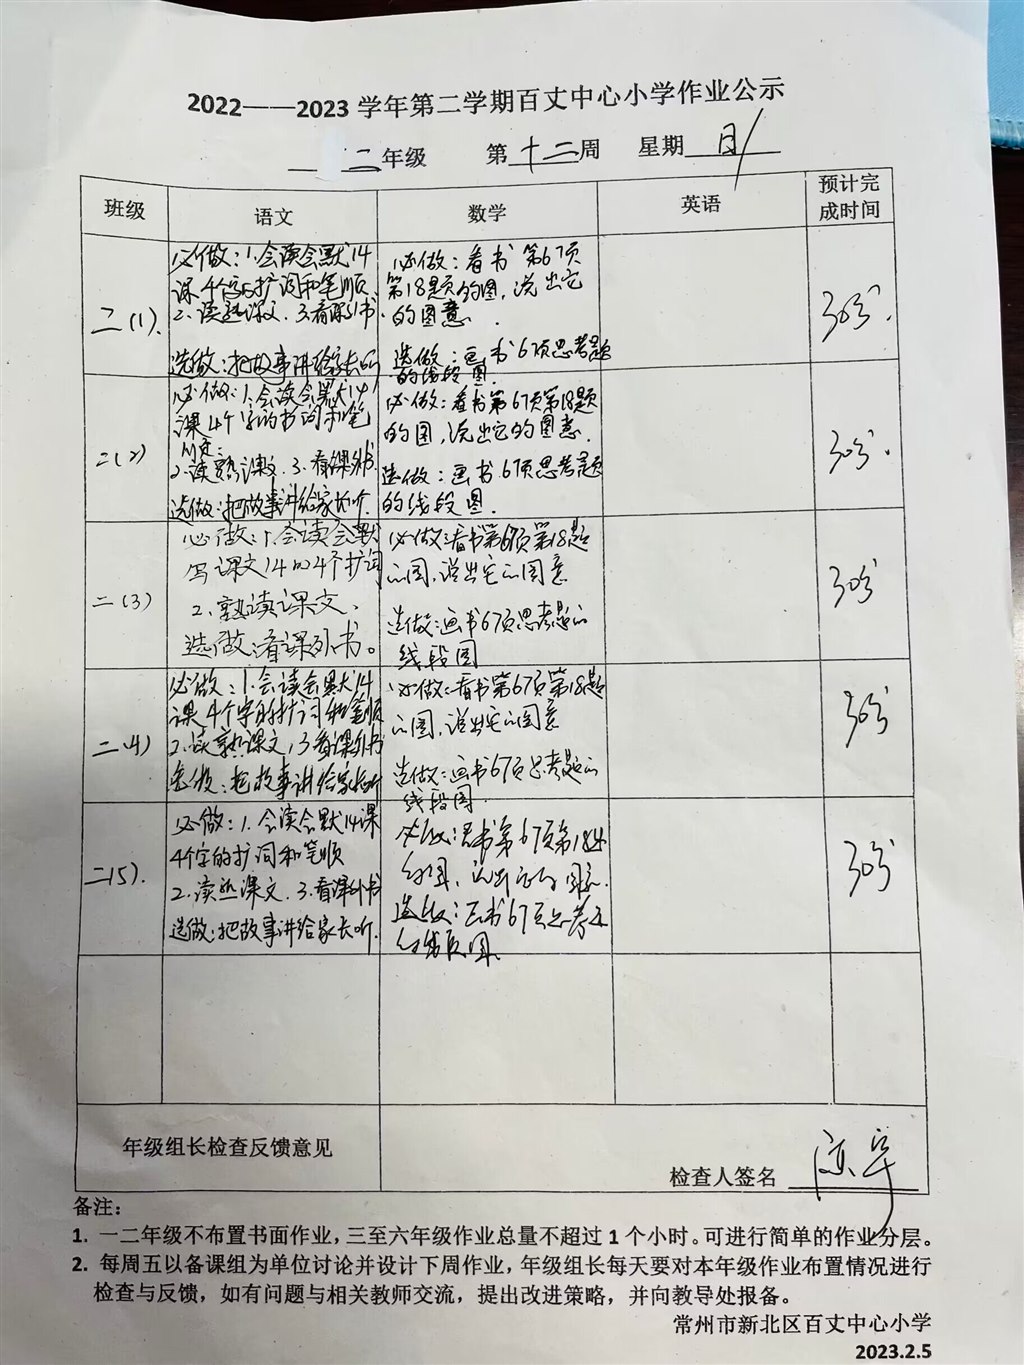 2022——2023 学年第二学期百丈中心小学作业公示
二年级 第十二周 星期日
班级 语文 数学 英语 预计完成时间
二(1).
必做：1.会读会默14
课4个字的扩词和笔顺
2.读熟课文.3.看课外书.
选做：把故事讲给家长听
必做：看书第67页
第18题的图，说出它
的图意.
选做：画书67页思考题
的线段图.
30分.
二(2)
必做：1.会读会默14
课4个字的扩词和笔
顺.
2.读熟课文.3.看课外书.
选做：把故事讲给家长听.
必做：看书第67页第18题
的图，说出它的图意.
选做：画书67页思考题
的线段图.
30分.
二(3)
必做：1.会读会默
写课文14的4个扩词
2.熟读课文.
选做：看课外书。
必做：看书第67页第18题
的图，说出它的图意
选做：画书67页思考题的
线段图
30分
二(4)
必做：1.会读会默14
课4个字的扩词和笔顺
2.读熟课文，3.看课外书
选做：把故事讲给家长听
必做：看书第67页第18题
的图，说出它的图意
选做：画书67页思考题的
线段图.
30分
二(5).
必做：1.会读会默14课
4个字的扩词和笔顺
2.读熟课文.3.看课外书
选做：把故事讲给家长听.
必做：看书第67页第18题
的图，说出它的图意.
选做：画书67页思考题
的线段图.
30分
年级组长检查反馈意见
检查人签名
备注：
1. 一二年级不布置书面作业，三至六年级作业总量不超过 1 个小时。可进行简单的作业分层。
2. 每周五以备课组为单位讨论并设计下周作业，年级组长每天要对本年级作业布置情况进行
检查与反馈，如有问题与相关教师交流，提出改进策略，并向教导处报备。
常州市新北区百丈中心小学
2023.2.5